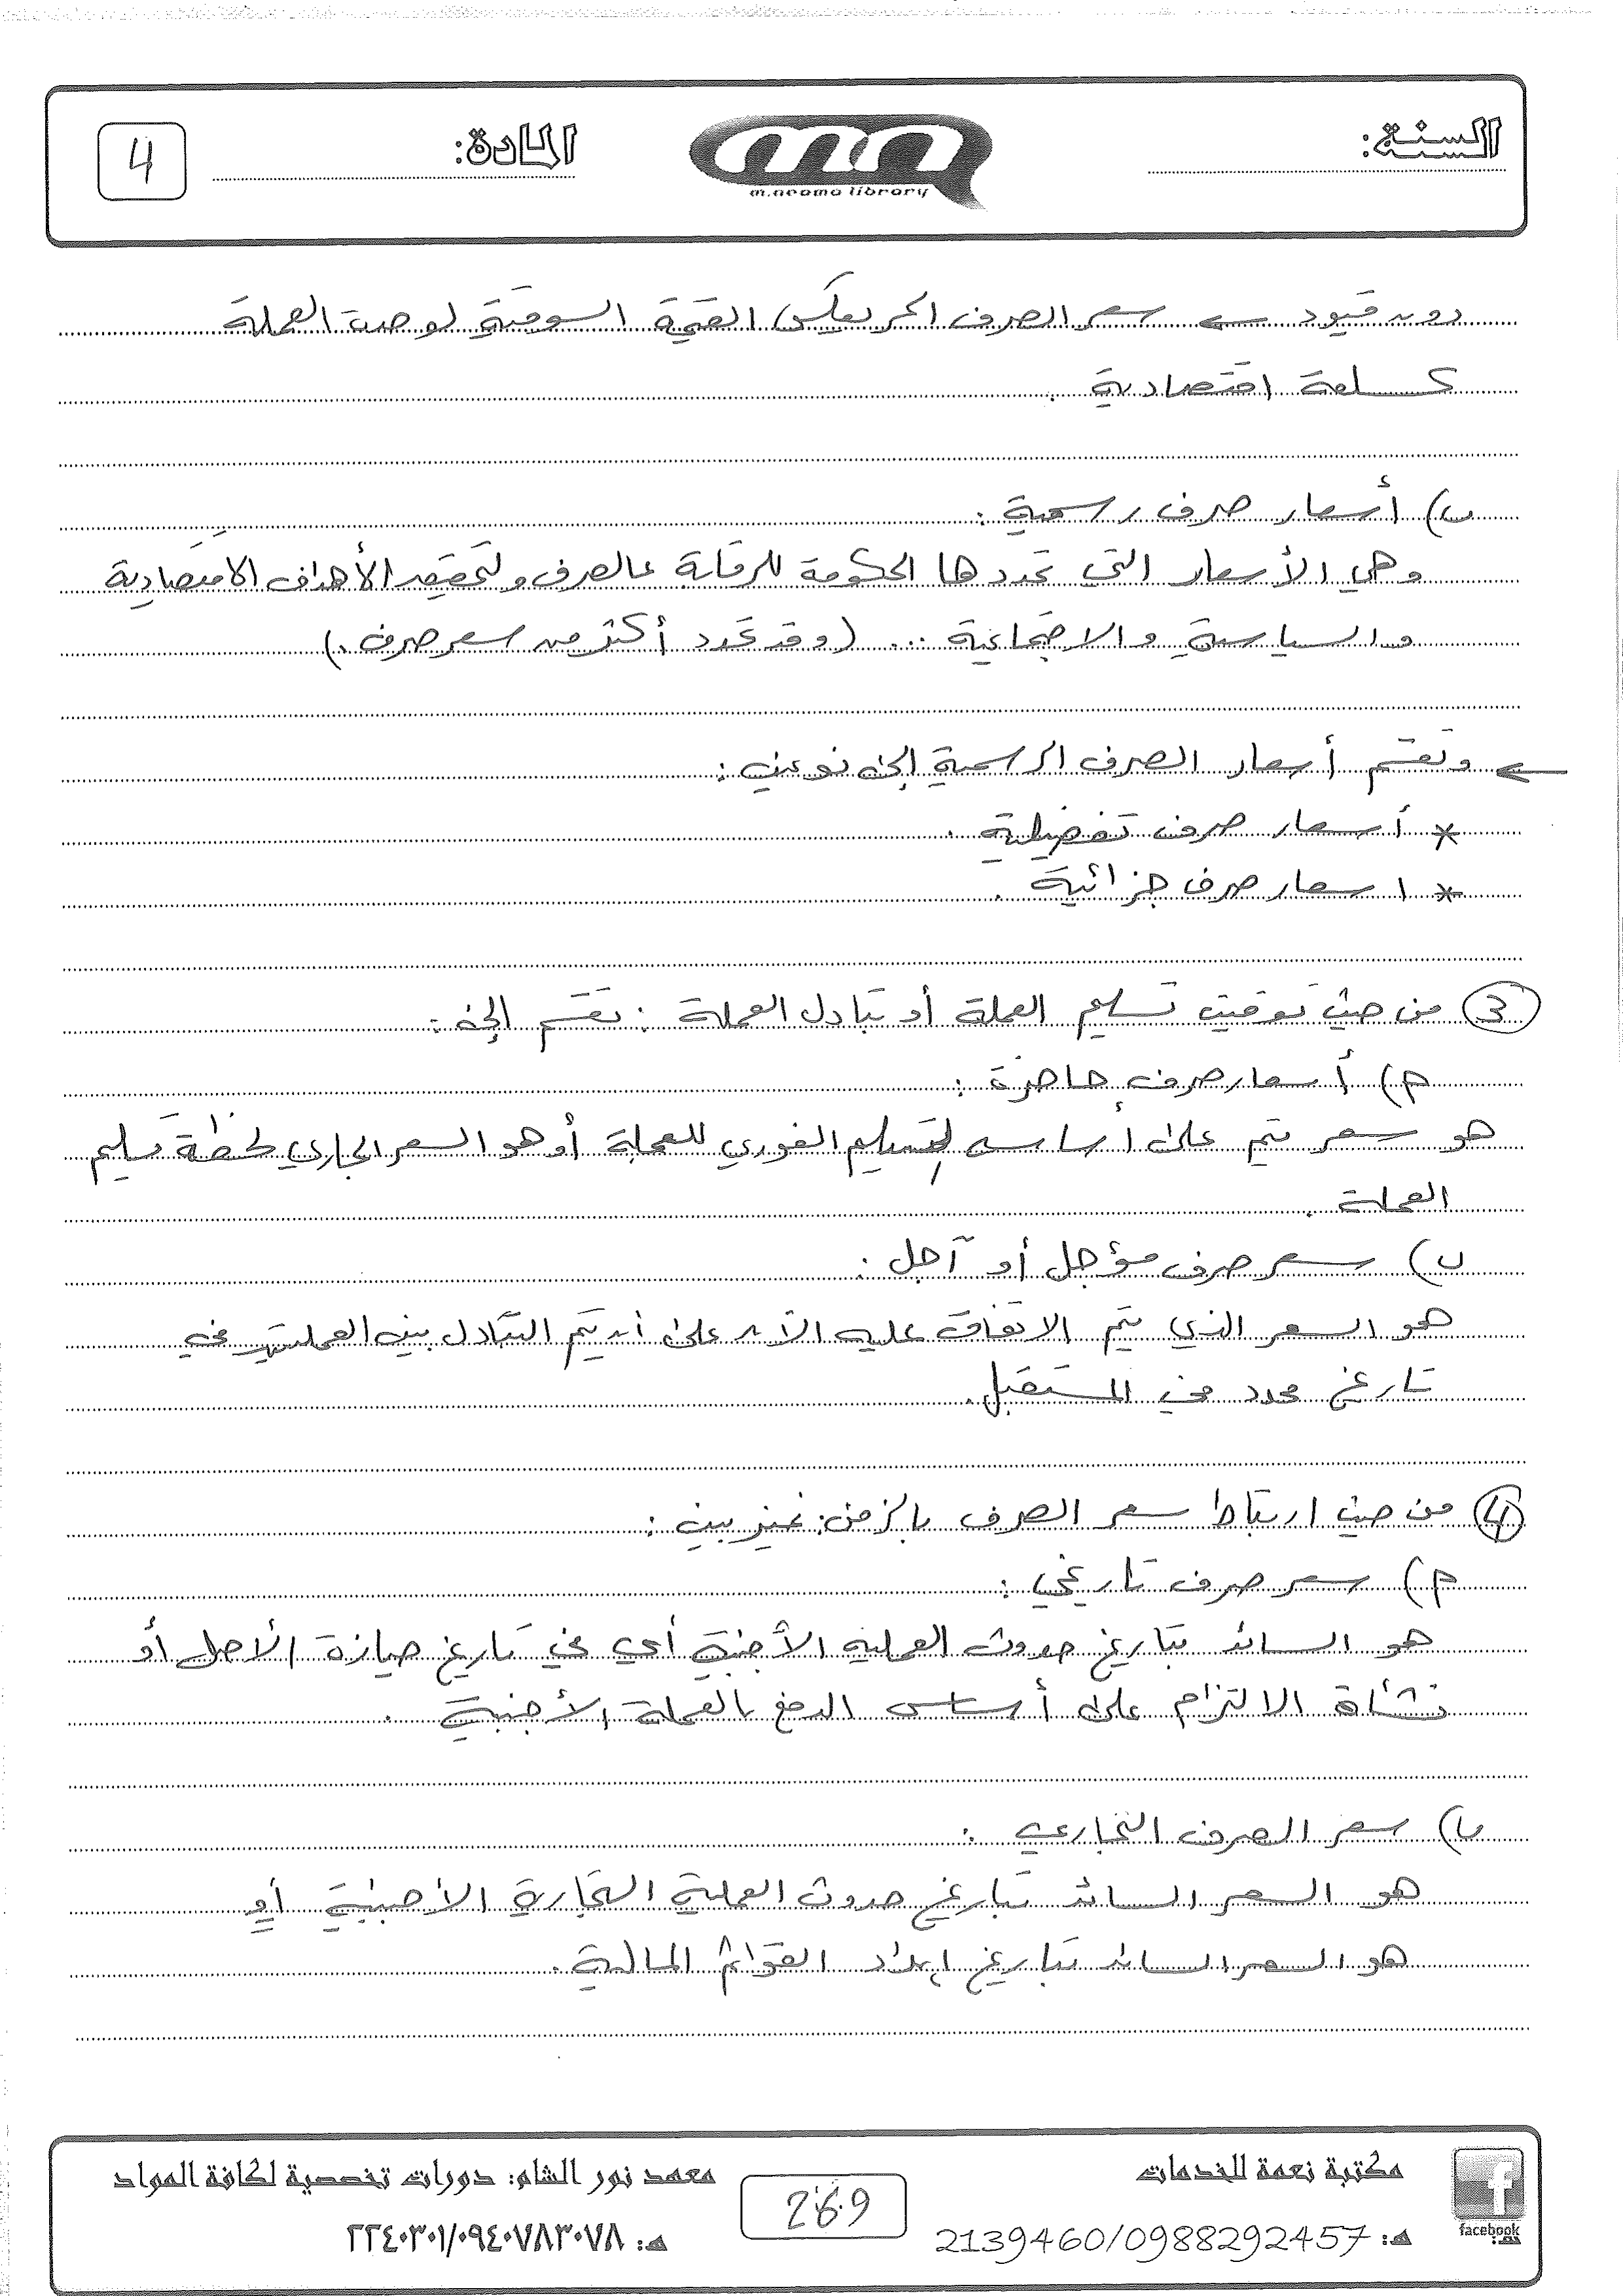 السنة:
m.neama library
المادة:
4
دون قيود ← سعر الصرف الحر يعكس القيمة السوقية لوحدة العملة
كسلعة اقتصادية.
ب) أسعار صرف رسمية:
وهي الأسعار التي تحددها الحكومة للرقابة عالصرف ولتحقيق الأهداف الاقتصادية
والسياسية والاجتماعية ... (وقد تحدد أكثر من سعر صرف.)
← وتقسم أسعار الصرف الرسمية إلى نوعين:
* أسعار صرف تفضيلية.
* اسعار صرف جزائية.
3 من حيث توقيت تسليم العملة أو تبادل العملة: تقسم إلى:
م) أسعار صرف حاضرة:
هو سعر يتم على أساس التسليم الفوري للعملة أو هو السعر الجاري لحظة تسليم
العملة.
ب) سعر صرف مؤجل أو آجل:
هو السعر الذي يتم الاتفاق عليه الآن على أن يتم التبادل بين العملتين في
تاريخ محدد في المستقبل.
4 من حيث ارتباط سعر الصرف بالزمن: نميز بين:
م) سعر صرف تاريخي:
هو السائد بتاريخ حدوث العملية الأجنبية أي في تاريخ حيازة الأصل أو
نشأة الالتزام على أساس الدفع بالعملة الأجنبية.
ب) سعر الصرف التجاري:
هو السعر السائد بتاريخ حدوث العملية التجارية الأجنبية أو
هو السعر السائد بتاريخ إعداد القوائم المالية.
facebook
مكتبة نعمة للخدمات
هـ: 2139460/0988292457
269
معهد نور الشام: دورات تخصصية لكافة المواد
هـ: ٢٢٤٠٣٠١/٠٩٤٠٧٨٣٠٧٨